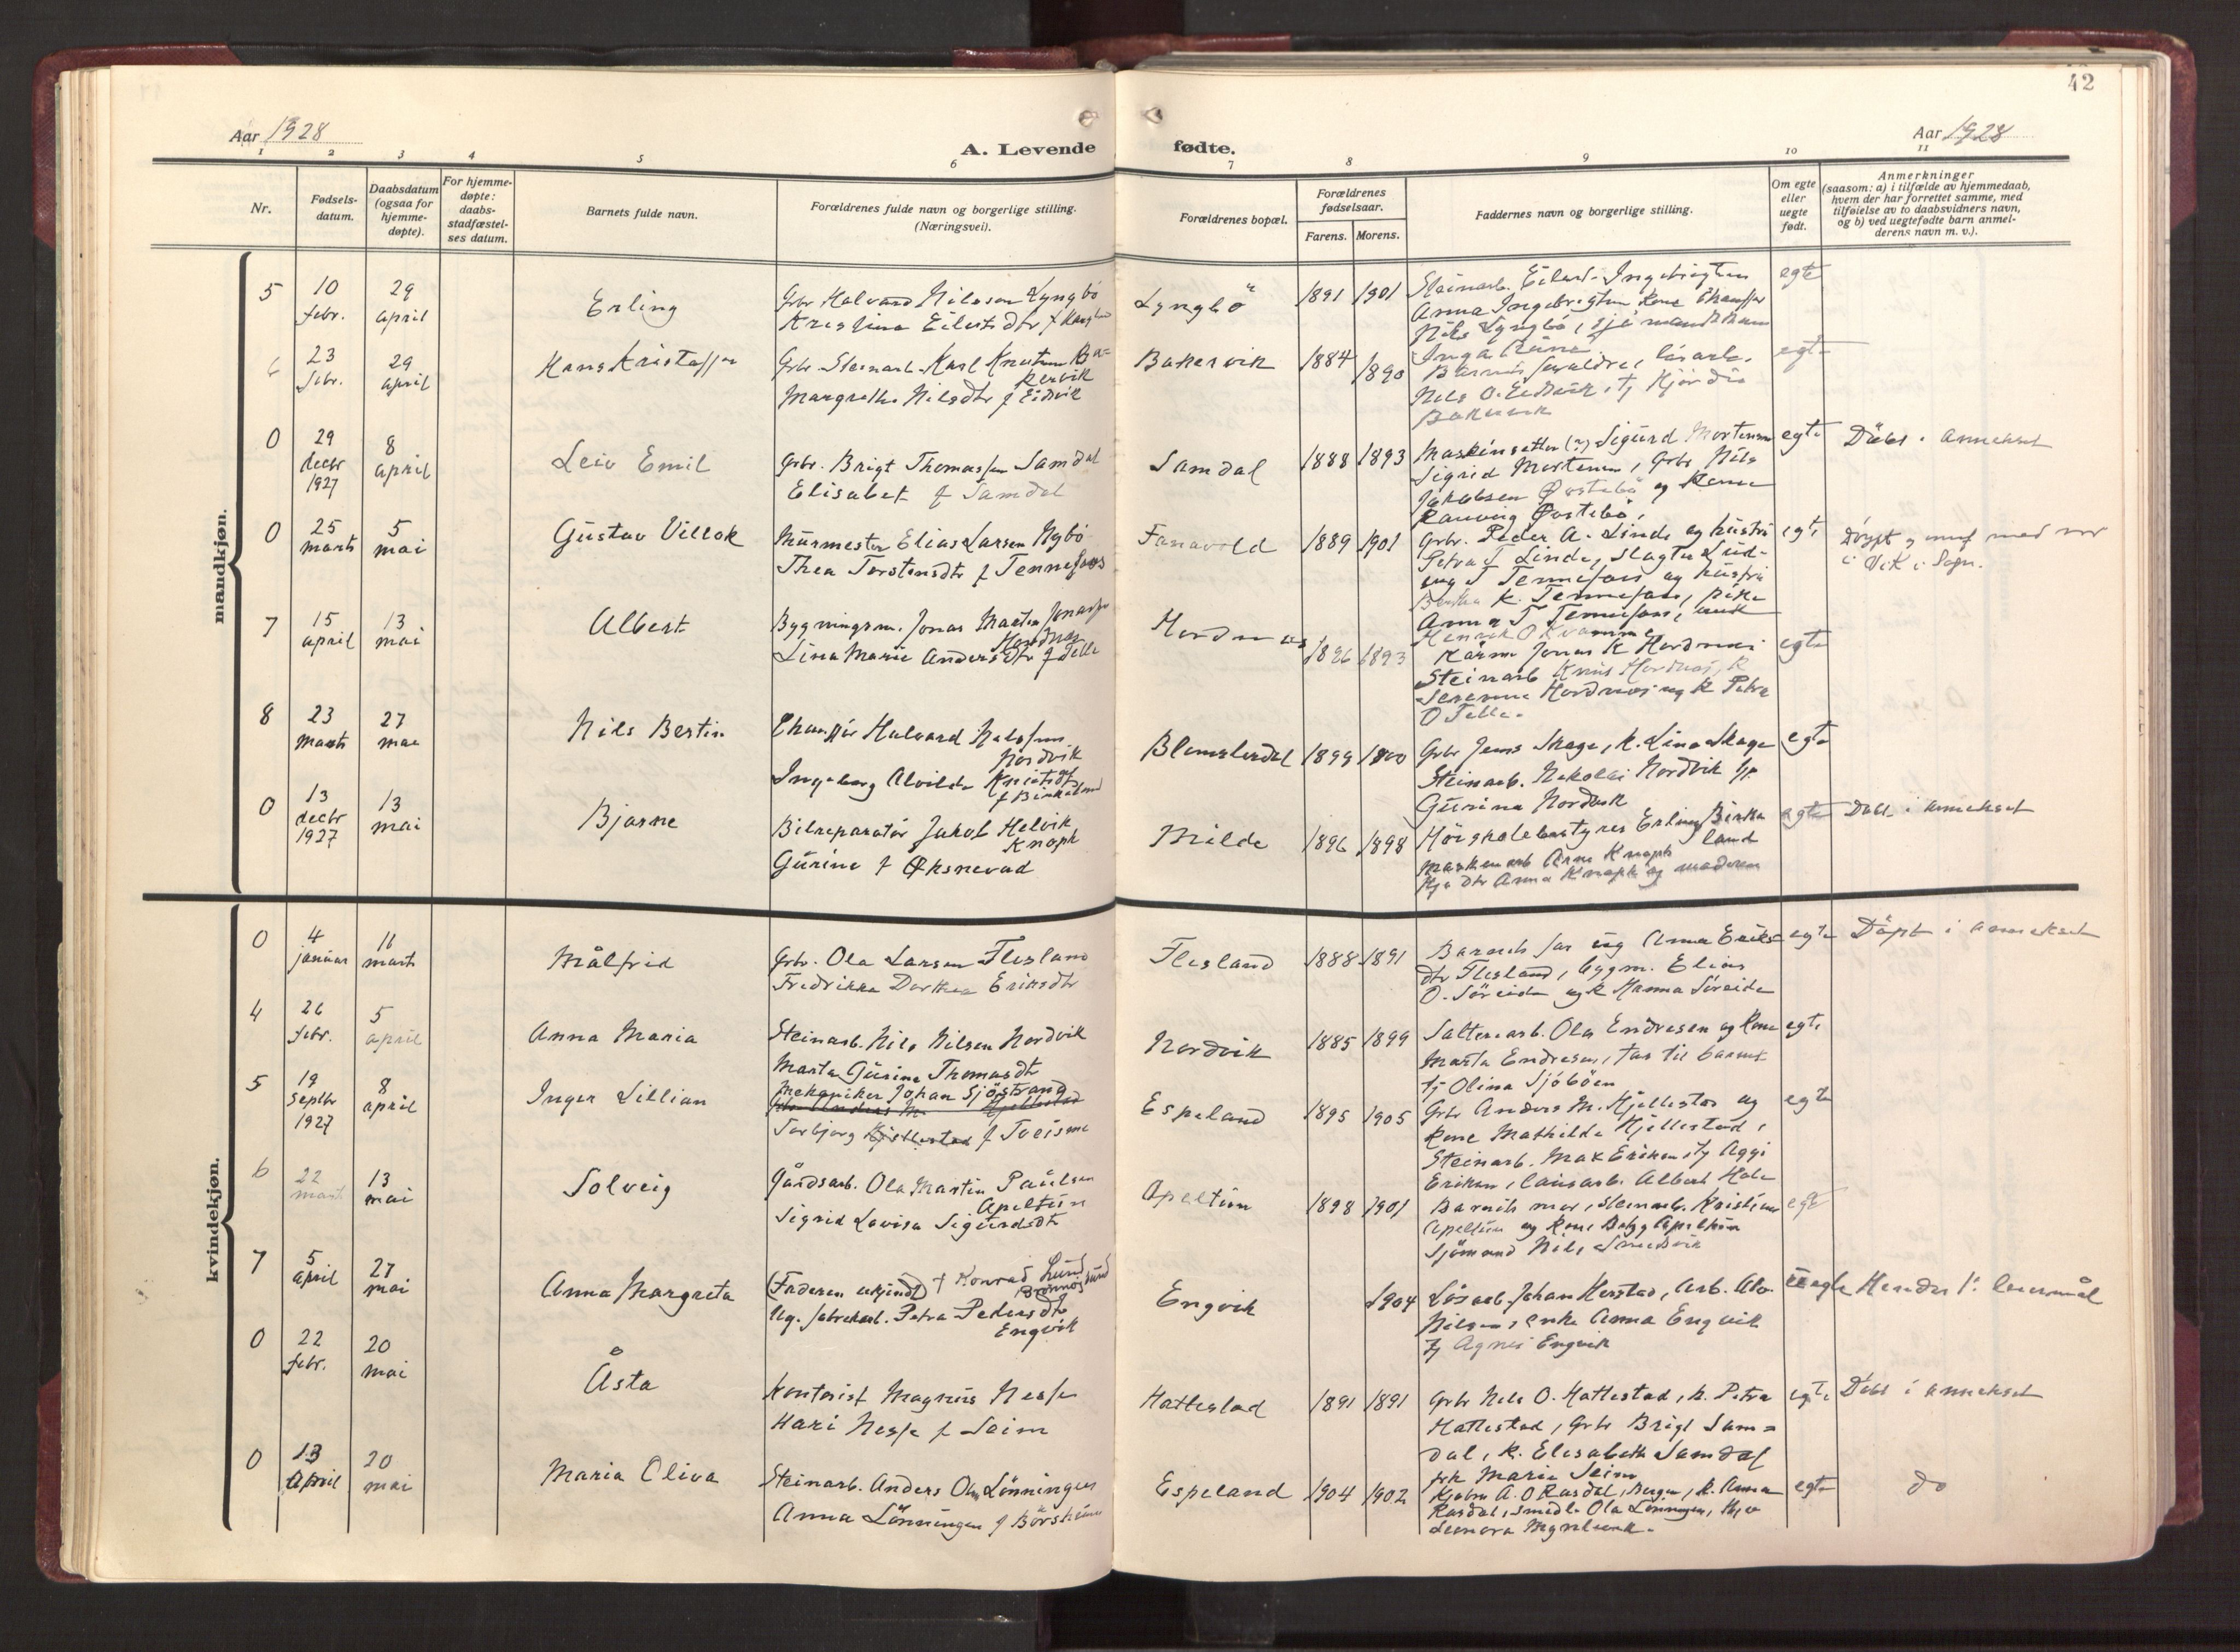 42
Aar 1928
A. Levende fødte.
Aar 1928
1 2 3 4 5 6 7 8 9 10 11
Nr.
Fødsels-
datum.
Daabsdatum
(ogsaa for
hjemme-
døpte).
For hjemme-
døpte:
daabs-
stadfæstel-
ses datum.
Barnets fulde navn.
Forældrenes fulde navn og borgerlige stilling.
(Næringsvei).
Forældrenes bopæl.
Forældrenes
fødselsaar.
Farens. Morens.
Faddernes navn og borgerlige stilling.
Om egte
eller
uegte
født.
Anmerkninger
(saasom: a) i tilfælde av hjemmedaab,
hvem der har forrettet samme, med
tilføielse av to daabsvidners navn,
og b) ved uegtefødte barn anmel-
derens navn m. v.).
mandkjøn.
5 10 febr. 29 april
Erling
Gbr Halvard Nilssen Lyngbö
Kristina Eilertsdtr f
Lyngbö
1891 1901
Steinarb. Eilert Ingebrigtsen
Anna Ingebrigtsen Kone
Nils Lyngbö, sjömand
egte
6 23 febr. 29 april
Hans Kristoffer
Gbr. Steinarb. Karl Knutsen Ba=
kervik
Margrethe Nilsdtr f Eidsvik
Bakervik
1884 1890
Inga
Barnets foreldre, lösarb.
Nils O. Eidsvik, tj Hjördis
Bakervik
egte
0 29 decbr 1927 8 april
Leiv Emil
Gbr. Brigt Thomassen Samdal
Elisabet f Samdal
Samdal
1888 1893
Maskinsetter (?) Sigurd Mortensen
Sigrid Mortensen, Gbr Nils
Jakobsen Øvstebö og Kone
Rannveig Øvstebö,
egte
Döbt i annekset
0 25 marts 5 mai
Gustav Villok
Murmester Elias Larsen Nybö
Thea Torstensdtr f Tennefoss
Fanavold
1889 1901
Gbr. Peder A. Linde og hustru
Petra T Linde, Slagter Lud-
vig T Tennefoss og hustru
K. Tennefoss, pike
Anna T Tennefoss, enk
Henrik O Kvamme
egte
Döypt
i Vik i Sogn.
7 15 april 13 mai
Albert
Bygningsm. Jonas Martin Jonassen
Hordnes
Lina Marie Andersdtr f Telle
Hordnes
1896 1893
Jonas K Hordnes
Steinarb Hordnes, K
Serenna Hordnes og K Petra
O Telle.
egte
8 23 marts 27 mai
Nils Bertin
Chauffør Halvard Nilssen
Nordvik
Ingeborg Alvilda
f Birkeland
Blomsterdal
1899 1900
Gbr Jens Skage, K. Lina Skage
Steinarb. Nikolai Nordvik hf
Gurina Nordvik
egte
0 13 decbr 1927 13 mai
Bjarne
Bilreparatör Jakob Helvik
Knaph
Gurine f Øksnevad
Milde
1896 1898
Höiskolebestyrer Erling Birke
land
Arne Knaph
Anna Knaph og moderen
egte
Döbt i annekset
kvindekjøn.
0 4 januar 11 marts
Målfrid
Gbr. Ola Larsen Flesland
Fredrikke Dorthea Eriksdtr
Flesland
1888 1891
Barnets far og Anna Eriks=
dtr Flesland, bygm. Elias
O. Söreide og K Hanna Söreide
egte
Döpt i annekset
4 26 febr. 5 april
Anna Maria
Steinarb. Nils Nilsen Nordvik
Marta Gurine Thomasdtr
Nordvik
1885 1899
Ola Endresen og Kone
Marta Endresen, far til barnet
tj Olina Sjöböen
egte
5 19 septbr 1927 8 april
Inger Lillian
Mekaniker Johan Sjöstrand
Gbr Anders M. Hjellestad
Torbjorg Hjellestad f Tveisme
Espeland
1895 1905
Gbr Anders M. Hjellestad og
Kone Mathilde Hjellestad,
Steinarb. Max Eriksen, tj Aggi
Eriksen, lausarb. Albert
egte
6 22 marts 13 mai
Solveig
Gårdsarb. Ola Martin Paulsen
Apeltun
Sigrid Lovisa Sigurdsdtr
Apeltun
1898 1901
Barnets mor, Steinarb. Kristian
Apeltun og Kone Apeltun
Sjömand Nils
egte
7 5 april 27 mai
Anna Margreta
(Faderen ukjendt) + Konrad Lund
Brönnöysund
Ug. fabrikarb. Petra Pedersdtr
Engvik
Engvik
1904
Lösarb. Johan Herstad, Arb.
Nilsen, enke Anna Engvik
tj Agnes Engvik
uegte
Hendes 1: leiermål
0 22 febr. 20 mai
Åsta
Kontorist Magnus Nesse
Kari Nesse f Seim
Hattestad
1891 1891
Gbr Nils O. Hattestad, K. Petra
Hattestad, Gbr Brigt Sam=
dal, K. Elisabeth Samdal
frk Marie Seim
egte
Döbt i annekset
0 13 april 20 mai
Maria Oliva
Steinarb. Anders Olsen Lönningen
Anna Lönningen f Börsheim
Espeland
1904 1902
A. O Rasdal, Bergen, K. Anna
Rasdal, smedl. Ola Lönningen,
Leonora
egte
do